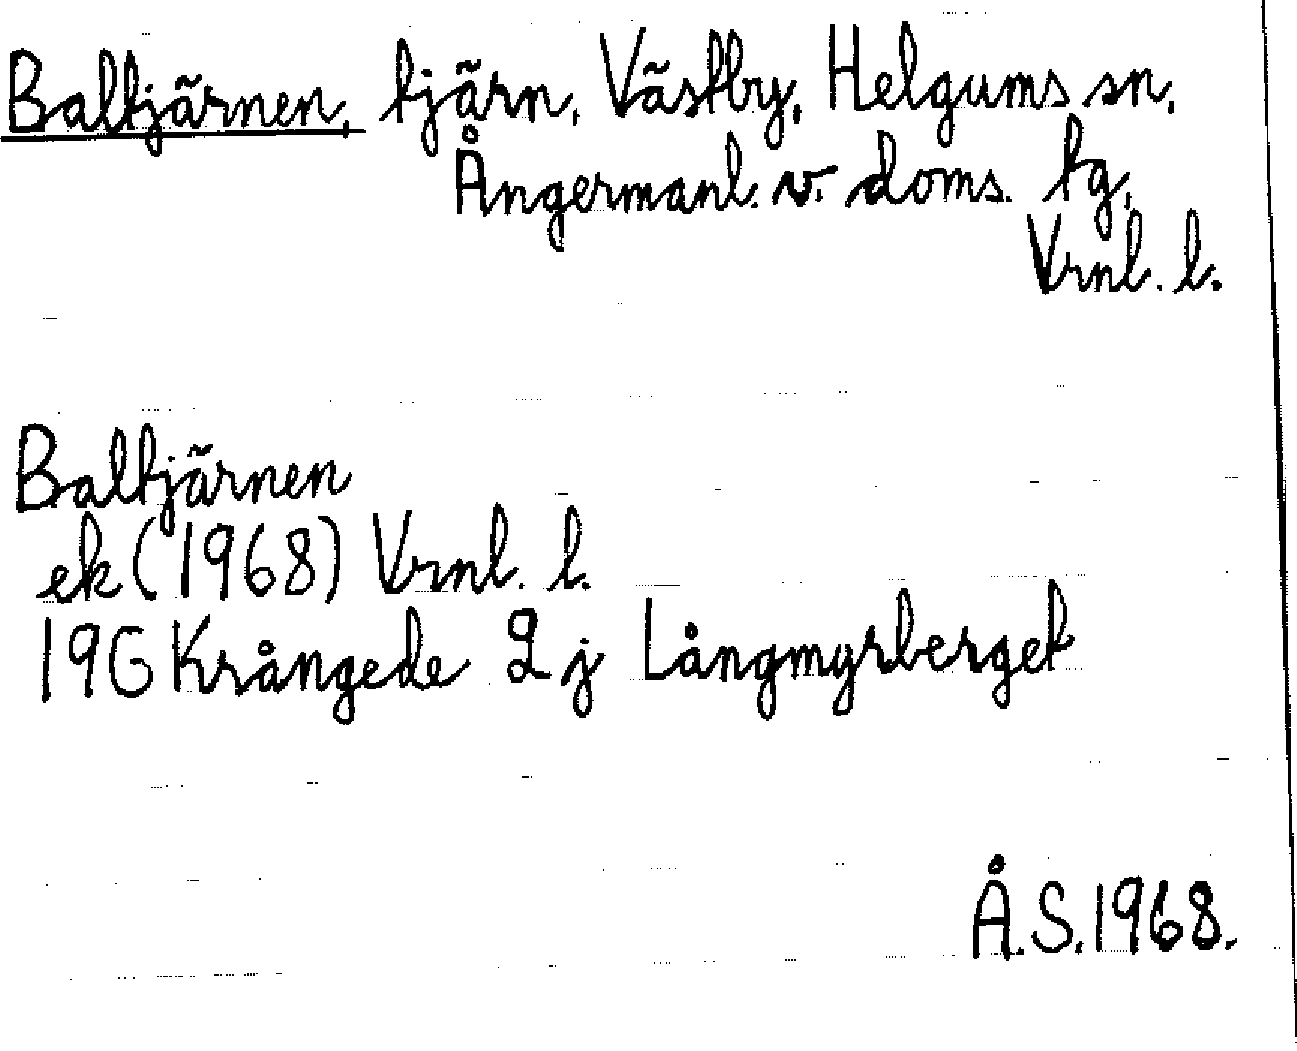 Baltjärnen, tjärn, Västby, Helgums sn,
Ångermanl. v. doms. tg,
Vrnl. l.
Baltjärnen
ek (1968) Vrnl. l.
19G Krångede 2 j Långmyrberget
Å.S. 1968.